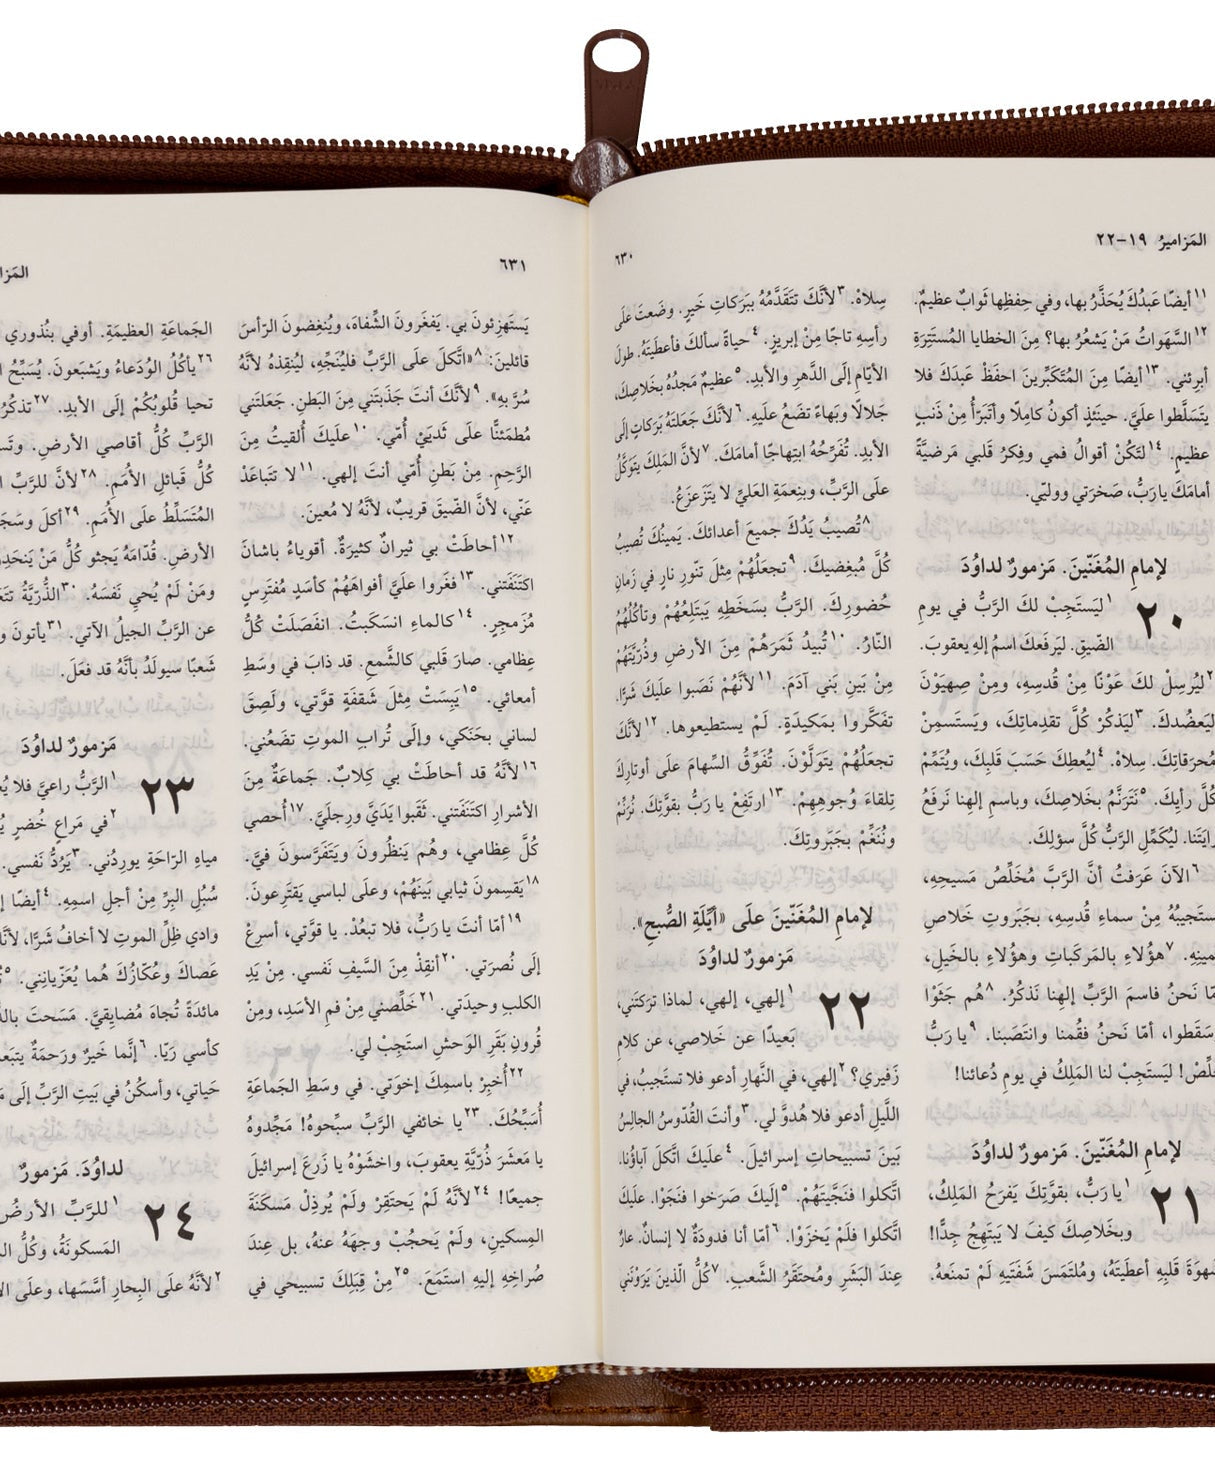 المَزاميرُ ١٩–٢٢
٦٣٠
١١ أيضًا عَبدُكَ يُحَذَّرُ بها، وفي حِفظِها ثَوابٌ عظيمٌ.
١٢ السَّهَواتُ مَنْ يَشعُرُ بها؟ مِنَ الخطايا المُستَتِرَةِ
أبرِئني. ١٣ أيضًا مِنَ المُتَكَبِّرينَ احفَظْ عَبدَكَ فلا
يتَسَلَّطوا علَيَّ. حينَئذٍ أكونُ كامِلًا وأتَبَرّأُ مِنْ ذَنبٍ
عظيمٍ. ١٤ لتَكُنْ أقوالُ فمي وفِكرُ قَلبي مَرضيَّةً
أمامَكَ يا رَبُّ، صَخرَتي ووليّي.
لإمامِ المُغَنّينَ. مَزمورٌ لداوُدَ
٢٠ ١ ليَستَجِبْ لكَ الرَّبُّ في يومِ
الضّيقِ. ليَرفَعكَ اسمُ إلهِ يعقوبَ.
٢ ليُرسِلْ لكَ عَوْنًا مِنْ قُدسِهِ، ومِنْ صِهيَوْنَ
ليَعضُدكَ. ٣ ليَذكُرْ كُلَّ تقدِماتِكَ، ويَستَسمِنْ
مُحرَقاتِكَ. سِلاهْ. ٤ ليُعطِكَ حَسَبَ قَلبِكَ، ويُتَمِّمْ
كُلَّ رأيِكَ. ٥ نَتَرَنَّمُ بخَلاصِكَ، وباسمِ إلهِنا نَرفَعُ
رايَتَنا. ليُكَمِّلِ الرَّبُّ كُلَّ سؤلِكَ.
٦ الآنَ عَرَفتُ أنَّ الرَّبَّ مُخَلِّصُ مَسيحِهِ،
يَستَجيبُهُ مِنْ سماءِ قُدسِهِ، بجَبَروتِ خَلاصِ
يَمينِهِ. ٧ هؤُلاءِ بالمَركَباتِ وهؤُلاءِ بالخَيلِ،
أمّا نَحنُ فاسمَ الرَّبِّ إلهِنا نَذكُرُ. ٨ هُم جَثَوْا
وسَقَطوا، أمّا نَحنُ فقُمنا وانتَصَبنا. ٩ يا رَبُّ
خَلِّصْ! ليَستَجِبْ لنا المَلِكُ في يومِ دُعائنا!
لإمامِ المُغَنّينَ. مَزمورٌ لداوُدَ
٢١ ١ يا رَبُّ، بقوَّتِكَ يَفرَحُ المَلِكُ،
وبخَلاصِكَ كيفَ لا يَبتَهِجُ جِدًّا!
شَهوَةَ قَلبِهِ أعطَيتَهُ، ومُلتَمَسَ شَفَتَيهِ لَمْ تمنَعهُ.
سِلاهْ. ٣ لأنَّكَ تتَقَدَّمُهُ ببَرَكاتِ خَيرٍ. وضَعتَ علَى
رأسِهِ تاجًا مِنْ إبريزٍ. ٤ حياةً سألكَ فأعطَيتَهُ. طولَ
الأيّامِ إلَى الدَّهرِ والأبدِ. ٥ عظيمٌ مَجدُهُ بخَلاصِكَ،
جَلالًا وبَهاءً تضَعُ علَيهِ. ٦ لأنَّكَ جَعَلتَهُ بَرَكاتٍ إلَى
الأبدِ. تُفَرِّحُهُ ابتِهاجًا أمامَكَ. ٧ لأنَّ المَلِكَ يتَوَكَّلُ
علَى الرَّبِّ، وبنِعمَةِ العَليِّ لا يتَزَعزَعُ.
٨ تُصيبُ يَدُكَ جميعَ أعدائكَ. يَمينُكَ تُصيبُ
كُلَّ مُبغِضيكَ. ٩ تجعَلُهُمْ مِثلَ تنّورِ نارٍ في زَمانِ
حُضورِكَ. الرَّبُّ بسَخَطِهِ يَبتَلِعُهُمْ وتأكُلُهُمُ
النّارُ. ١٠ تُبيدُ ثَمَرَهُمْ مِنَ الأرضِ وذُرّيَّتَهُمْ
مِنْ بَينِ بَني آدَمَ. ١١ لأنَّهُمْ نَصَبوا علَيكَ شَرًّا.
تفَكَّروا بمَكيدَةٍ. لَمْ يستطيعوها. ١٢ لأنَّكَ
تجعَلُهُمْ يتَوَلَّوْنَ. تُفَوِّقُ السِّهامَ علَى أوتارِكَ
تِلقاءَ وُجوهِهِمْ. ١٣ ارتَفِعْ يا رَبُّ بقوَّتِكَ. نُرَنِّمْ
ونُنَغِّمْ بجَبَروتِكَ.
لإمامِ المُغَنّينَ علَى «أيِّلَةِ الصُّبحِ».
مَزمورٌ لداوُدَ
٢٢ ١ إلهي، إلهي، لماذا ترَكتَني،
بَعيدًا عن خَلاصي، عن كلامِ
زَفيري؟ ٢ إلهي، في النَّهارِ أدعو فلا تستَجيبُ، في
اللَّيلِ أدعو فلا هُدوَّ لي. ٣ وأنتَ القُدّوسُ الجالِسُ
بَينَ تسبيحاتِ إسرائيلَ. ٤ علَيكَ اتَّكلَ آباؤُنا.
اتَّكلوا فنَجَّيتَهُمْ. ٥ إلَيكَ صَرَخوا فنَجَوْا. علَيكَ
اتَّكلوا فلَمْ يَخزَوْا. ٦ أمّا أنا فدودَةٌ لا إنسانٌ. عارٌ
عِندَ البَشَرِ ومُحتَقَرُ الشَّعبِ. ٧ كُلُّ الّذينَ يَرَوْنَني
٦٣١
المَزا
يَستَهزِئونَ بي. يَفغَرونَ الشِّفاهَ، ويُنغِضونَ الرّأسَ
قائلينَ: ٨ «اتَّكلَ علَى الرَّبِّ فليُنَجِّهِ، ليُنقِذهُ لأنَّهُ
سُرَّ بهِ». ٩ لأنَّكَ أنتَ جَذَبتَني مِنَ البَطنِ. جَعَلتَني
مُطمَئنًّا علَى ثَديَيْ أُمّي. ١٠ علَيكَ أُلقيتُ مِنَ
الرَّحِمِ. مِنْ بَطنِ أُمّي أنتَ إلهي. ١١ لا تتَباعَدْ
عَنّي، لأنَّ الضّيقَ قريبٌ، لأنَّهُ لا مُعينَ.
١٢ أحاطَتْ بي ثيرانٌ كثيرَةٌ. أقوياءُ باشانَ
اكتَنَفَتني. ١٣ فغَروا علَيَّ أفواهَهُمْ كأسَدٍ مُفتَرِسٍ
مُزَمجِرٍ. ١٤ كالماءِ انسَكَبتُ. انفَصَلَتْ كُلُّ
عِظامي. صارَ قَلبي كالشَّمعِ. قد ذابَ في وسَطِ
أمعائي. ١٥ يَبِسَتْ مِثلَ شَقفَةٍ قوَّتي، ولَصِقَ
لساني بحَنَكي، وإلَى تُرابِ الموتِ تضَعُني.
١٦ لأنَّهُ قد أحاطَتْ بي كِلابٌ. جَماعَةٌ مِنَ
الأشرارِ اكتَنَفَتني. ثَقَبوا يَدَيَّ ورِجلَيَّ. ١٧ أُحصي
كُلَّ عِظامي، وهُم يَنظُرونَ ويَتَفَرَّسونَ فيَّ.
١٨ يَقسِمونَ ثيابي بَينَهُمْ، وعلَى لباسي يَقتَرِعونَ.
١٩ أمّا أنتَ يا رَبُّ، فلا تبعُدْ. يا قوَّتي، أسرِعْ
إلَى نُصرَتي. ٢٠ أنقِذْ مِنَ السَّيفِ نَفسي. مِنْ يَدِ
الكلبِ وحيدَتي. ٢١ خَلِّصني مِنْ فمِ الأسَدِ، ومِنْ
قُرونِ بَقَرِ الوَحشِ استَجِبْ لي.
٢٢ أُخبِرْ باسمِكَ إخوَتي. في وسَطِ الجَماعَةِ
أُسَبِّحُكَ. ٢٣ يا خائفي الرَّبِّ سبِّحوهُ! مَجِّدوهُ
يا مَعشَرَ ذُرّيَّةِ يعقوبَ، واخشَوْهُ يا زَرعَ إسرائيلَ
جميعًا! ٢٤ لأنَّهُ لَمْ يَحتَقِرْ ولَمْ يُرذِلْ مَسكَنَةَ
المِسكينِ، ولَمْ يَحجُبْ وجهَهُ عنهُ، بل عِندَ
صُراخِهِ إليهِ استَمَعَ. ٢٥ مِنْ قِبَلِكَ تسبيحي في
الجَماعَةِ العظيمَةِ. أوفي بنُذوري
٢٦ يأكُلُ الوُدَعاءُ ويَشبَعونَ. يُسَبِّحُ
تحيا قُلوبُكُمْ إلَى الأبدِ. ٢٧ تذكُرُ
الرَّبِّ كُلُّ أقاصي الأرضِ.
كُلُّ قَبائلِ الأُمَمِ. ٢٨ لأنَّ للرَّبِّ
المُتَسَلِّطُ علَى الأُمَمِ. ٢٩ أكلَ
الأرضِ. قُدّامَهُ يَجثو كُلُّ مَنْ
ومَنْ لَمْ يُحيِ نَفسَهُ. ٣٠ الذُّرّيَّةُ
عن الرَّبِّ الجيلُ الآتي. ٣١ يأتونَ
شَعبًا سيولَدُ بأنَّهُ قد فعَلَ.
مَزمورٌ لداوُدَ
٢٣ ١ الرَّبُّ راعيَّ فلا
٢ في مَراعٍ خُضرٍ
مياهِ الرّاحَةِ يورِدُني. ٣ يَرُدُّ نَفسي.
سُبُلِ البِرِّ مِنْ أجلِ اسمِهِ. ٤ أيضًا
وادي ظِلِّ الموتِ لا أخافُ شَرًّا،
عَصاكَ وعُكّازُكَ هُما يُعَزّيانِني. ٥
مائدَةً تُجاهَ مُضايِقيَّ. مَسَحتَ
كأسي رَيّا. ٦ إنَّما خَيرٌ ورَحمَةٌ
حَياتي، وأسكُنُ في بَيتِ الرَّبِّ إلَى
لداوُدَ. مَزمورٌ
٢٤ ١ للرَّبِّ الأرضُ
المَسكونَةُ، وكُلُّ
٢ لأنَّهُ علَى البِحارِ أسَّسَها، وعلَى